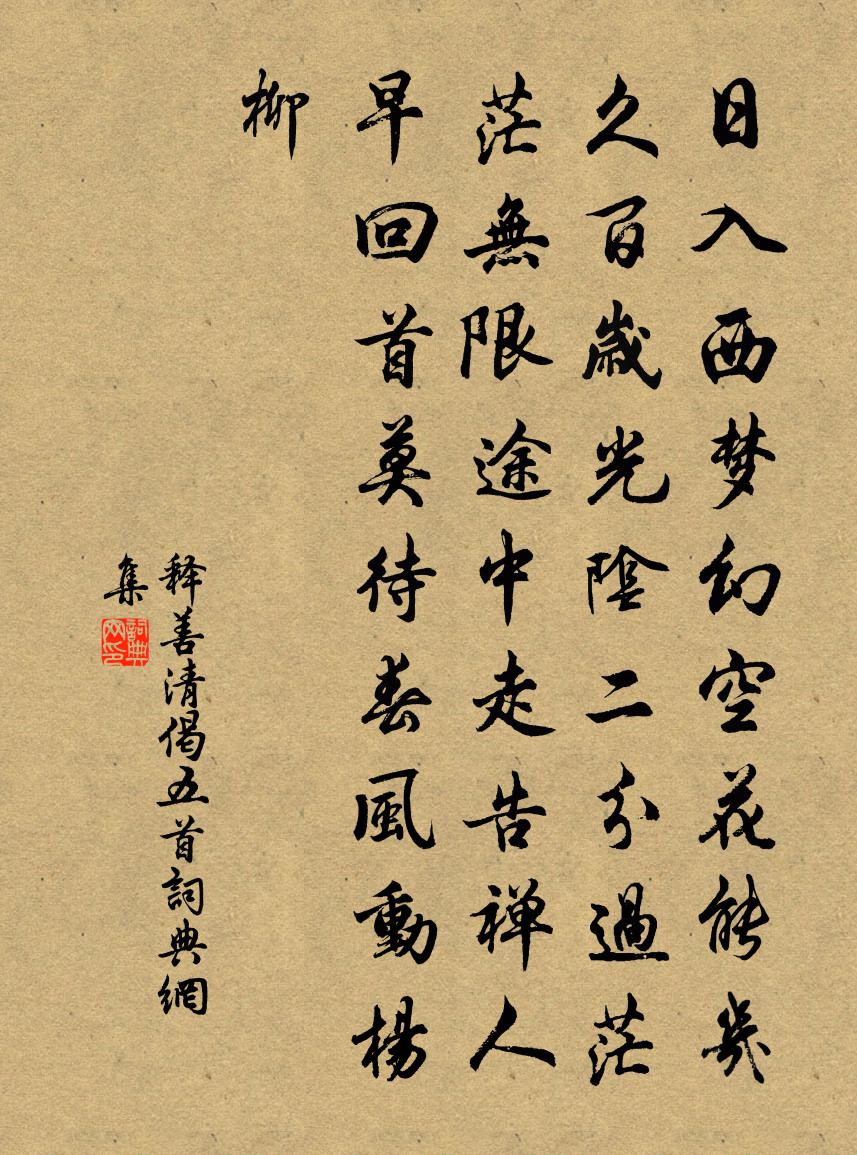 日入西梦幻空花能幾
久百歲光陰二分過茫
茫無限途中走告禅人
早回首莫待春風動楊
柳
释善清偈五首詞典網
集
詞典
网印